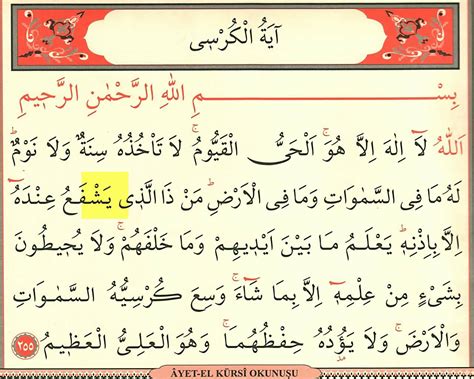 آيَةُ الْكُرْسِى
بِسْمِ اللهِ الرَّحْمٰنِ الرَّحٖيمِ
اَللهُ لَٓا اِلٰهَ اِلَّا هُوَۚ اَلْحَىُّ الْقَيُّومُۚ لَا تَاْخُذُهُ سِنَةٌ وَلَا نَوْمٌۜ
لَهُ مَا فِى السَّمٰوَاتِ وَمَا فِى الْاَرْضِۜ مَنْ ذَا الَّذٖى يَشْفَعُ عِنْدَهُٓ
اِلَّا بِاِذْنِهٖۜ يَعْلَمُ مَا بَيْنَ اَيْدٖيهِمْ وَمَا خَلْفَهُمْۚ وَلَا يُحٖيطُونَ
بِشَىْءٍ مِنْ عِلْمِهٖٓ اِلَّا بِمَا شَٓاءَۚ وَسِعَ كُرْسِيُّهُ السَّمٰوَاتِ
وَالْاَرْضَۚ وَلَا يَؤُ۫دُهُ حِفْظُهُمَاۚ وَهُوَ الْعَلِىُّ الْعَظٖيمُ ٢٥٥
ÂYET-EL KÜRSÎ OKUNUŞU